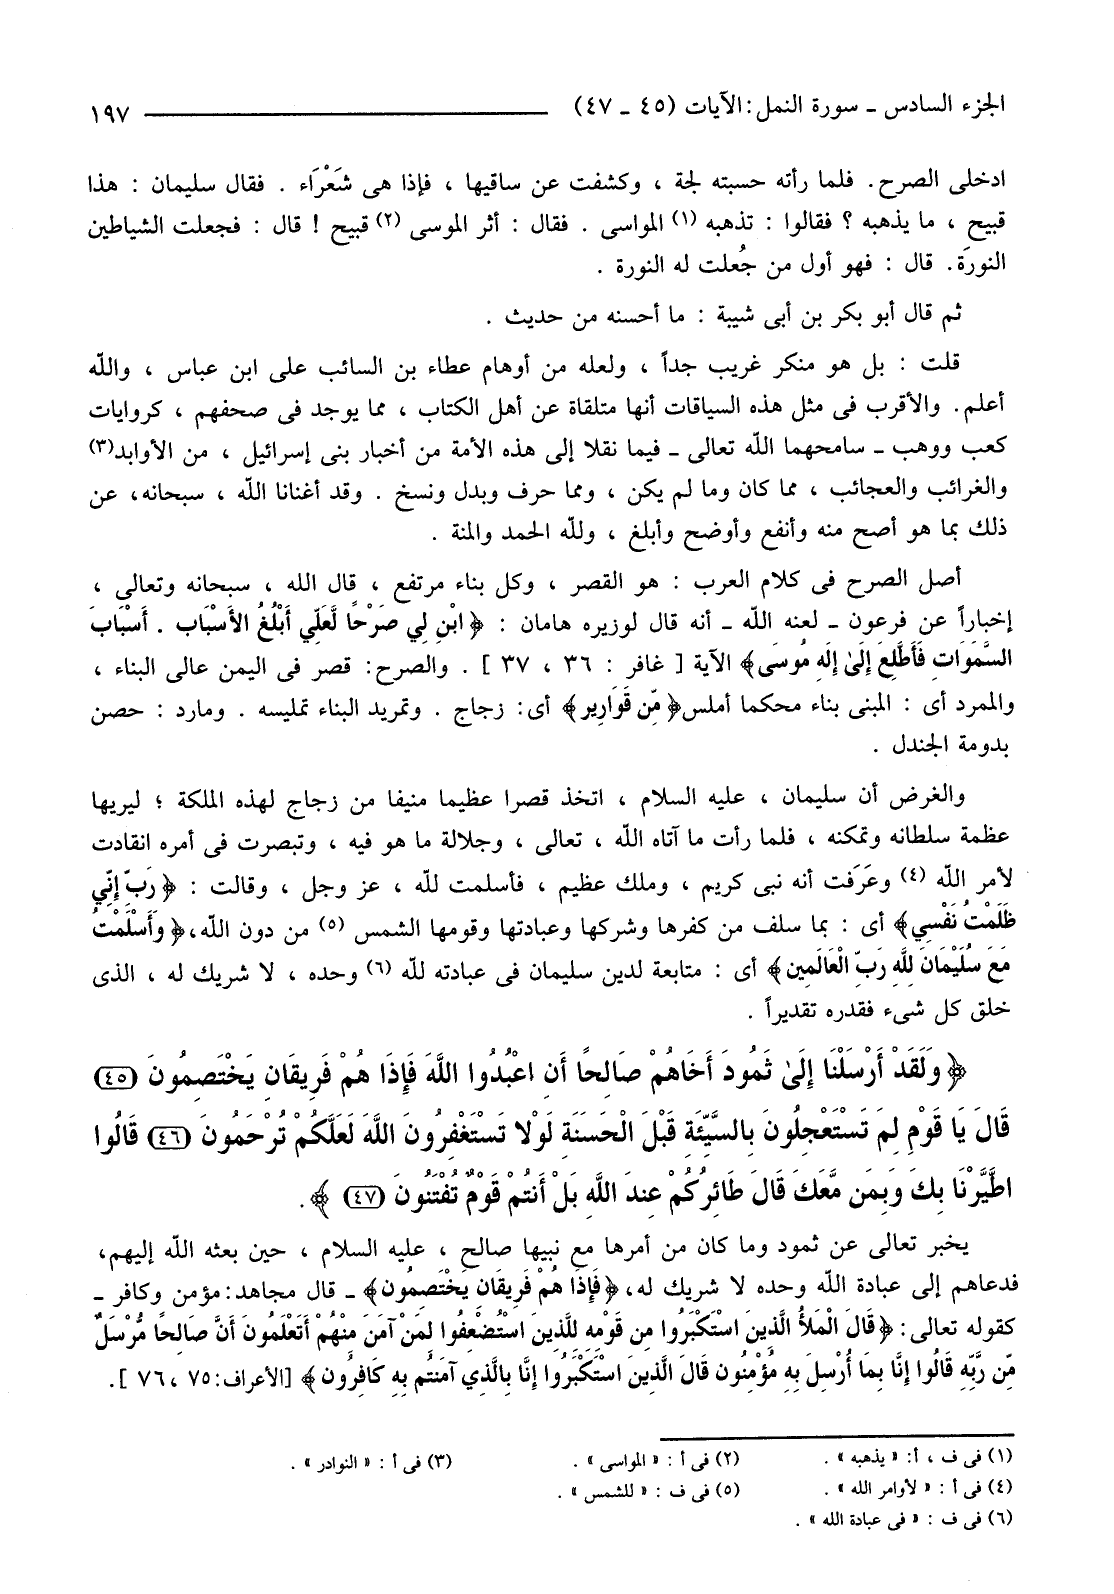 الجزء السادس ـ سورة النمل: الآيات (٤٥ ـ ٤٧) ١٩٧
ادخلى الصرح. فلما رأته حسبته لجة ، وكشفت عن ساقيها ، فإذا هى شَعْرَاء . فقال سليمان : هذا
قبيح ، ما يذهبه ؟ فقالوا : تذهبه (١) المواسى . فقال : أثر الموسى (٢) قبيح ! قال : فجعلت الشياطين
النورَة. قال : فهو أول من جُعلت له النورة .
ثم قال أبو بكر بن أبى شيبة : ما أحسنه من حديث .
قلت : بل هو منكر غريب جداً ، ولعله من أوهام عطاء بن السائب على ابن عباس ، والله
أعلم. والأقرب فى مثل هذه السياقات أنها متلقاة عن أهل الكتاب ، مما يوجد فى صحفهم ، كروايات
كعب ووهب ـ سامحهما الله تعالى ـ فيما نقلا إلى هذه الأمة من أخبار بنى إسرائيل ، من الأوابد(٣)
والغرائب والعجائب ، مما كان وما لم يكن ، ومما حرف وبدل ونسخ . وقد أغنانا الله ، سبحانه، عن
ذلك بما هو أصح منه وأنفع وأوضح وأبلغ ، ولله الحمد والمنة .
أصل الصرح فى كلام العرب : هو القصر ، وكل بناء مرتفع ، قال الله ، سبحانه وتعالى ،
إخباراً عن فرعون ـ لعنه الله ـ أنه قال لوزيره هامان : ﴿ ابْنِ لِي صَرْحًا لَّعَلِّي أَبْلُغُ الأَسْبَاب . أَسْبَابَ
السَّمَوَاتِ فَأَطَّلِعَ إِلَىٰ إِلَهِ مُوسَى﴾ الآية [ غافر : ٣٦ ، ٣٧ ] . والصرح: قصر فى اليمن عالى البناء ،
والممرد أى : المبنى بناء محكما أملس﴿ مِّن قَوَارِير﴾ أى: زجاج . وتمريد البناء تمليسه . ومارد : حصن
بدومة الجندل .
والغرض أن سليمان ، عليه السلام ، اتخذ قصرا عظيما منيفا من زجاج لهذه الملكة ؛ ليريها
عظمة سلطانه وتمكنه ، فلما رأت ما آتاه الله ، تعالى ، وجلالة ما هو فيه ، وتبصرت فى أمره انقادت
لأمر الله (٤) وعَرَفت أنه نبى كريم ، وملك عظيم ، فأسلمت لله ، عز وجل ، وقالت : ﴿ رَبِّ إِنِّي
ظَلَمْتُ نَفْسِي﴾ أى : بما سلف من كفرها وشركها وعبادتها وقومها الشمس (٥) من دون الله، ﴿ وَأَسْلَمْتُ
مَعَ سُلَيْمَانَ لِلَّهِ رَبِّ الْعَالَمِين﴾ أى : متابعة لدين سليمان فى عبادته لله (٦) وحده ، لا شريك له ، الذى
خلق كل شىء فقدره تقديراً .
﴿ وَلَقَدْ أَرْسَلْنَا إِلَىٰ ثَمُودَ أَخَاهُمْ صَالِحًا أَنِ اعْبُدُوا اللَّهَ فَإِذَا هُمْ فَرِيقَانِ يَخْتَصِمُونَ (٤٥)
قَالَ يَا قَوْمِ لِمَ تَسْتَعْجِلُونَ بِالسَّيِّئَةِ قَبْلَ الْحَسَنَةِ لَوْلا تَسْتَغْفِرُونَ اللَّهَ لَعَلَّكُمْ تُرْحَمُونَ (٤٦) قَالُوا
اطَّيَّرْنَا بِكَ وَبِمَن مَّعَكَ قَالَ طَائِرُكُمْ عِندَ اللَّهِ بَلْ أَنتُمْ قَوْمٌ تُفْتَنُونَ (٤٧) ﴾.
يخبر تعالى عن ثمود وما كان من أمرها مع نبيها صالح ، عليه السلام ، حين بعثه الله إليهم،
فدعاهم إلى عبادة الله وحده لا شريك له، ﴿فَإِذَا هُمْ فَرِيقَانِ يَخْتَصِمُون﴾ ـ قال مجاهد: مؤمن وكافر ـ
كقوله تعالى: ﴿قَالَ الْمَلأُ الَّذِينَ اسْتَكْبَرُوا مِن قَوْمِهِ لِلَّذِينَ اسْتُضْعِفُوا لِمَنْ آمَنَ مِنْهُمْ أَتَعْلَمُونَ أَنَّ صَالِحًا مُّرْسَلٌ
مِّن رَّبِّهِ قَالُوا إِنَّا بِمَا أُرْسِلَ بِهِ مُؤْمِنُون قَالَ الَّذِينَ اسْتَكْبَرُوا إِنَّا بِالَّذِي آمَنتُم بِهِ كَافِرُون ﴾ [الأعراف: ٧٥ ، ٧٦ ].
(١) فى ف ، أ: « يذهبه » . (٢) فى أ : « المواسى » . (٣) فى أ : « النوادر » .
(٤) فى أ : « لأوامر الله » . (٥) فى ف : « للشمس » .
(٦) فى ف : « فى عبادة الله » .